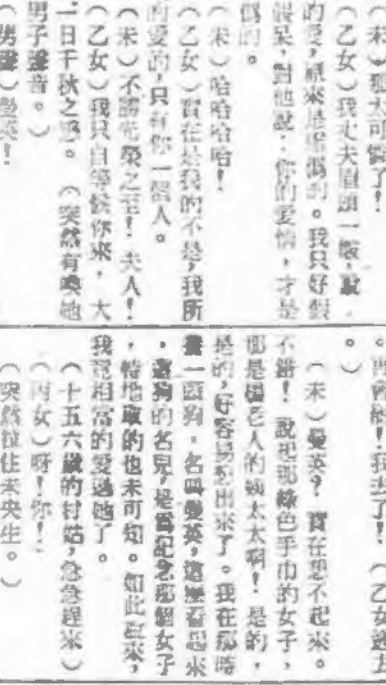 (未)那太可憐了!
(乙女)我丈夫眉頭一皺,說.
的愛,原來是虛偽的。我只好假
裝呆,對他說.你的愛情,才是
偽的。
(未)哈哈哈哈!
(乙女)實在是我的不是,我所
的愛的,只有你一個人。
(未)不勝光榮之至!夫人!
(乙女)我只自等候你來,大
一日千秋之感。(突然有喚她
男子聲音。)
(男聲)曼英!
。再會榴!我去了!(乙女逃去
。)
(未)曼英?實在想不起來。
不錯!說起那綠色手巾的女子,
那是楊老人的姨太太啊!是的,
是的,好容易想出來了。我在那時
養一頭狗.名叫曼英,這麼看起來
,這狗的名兒,是爲紀念那個女子
,特地取的也未可知。如此說來,
我竟相當的愛過她了。
(十五六歲的村姑,急急趕來)
(丙女)呀!你!
(突然拉住未央生。)